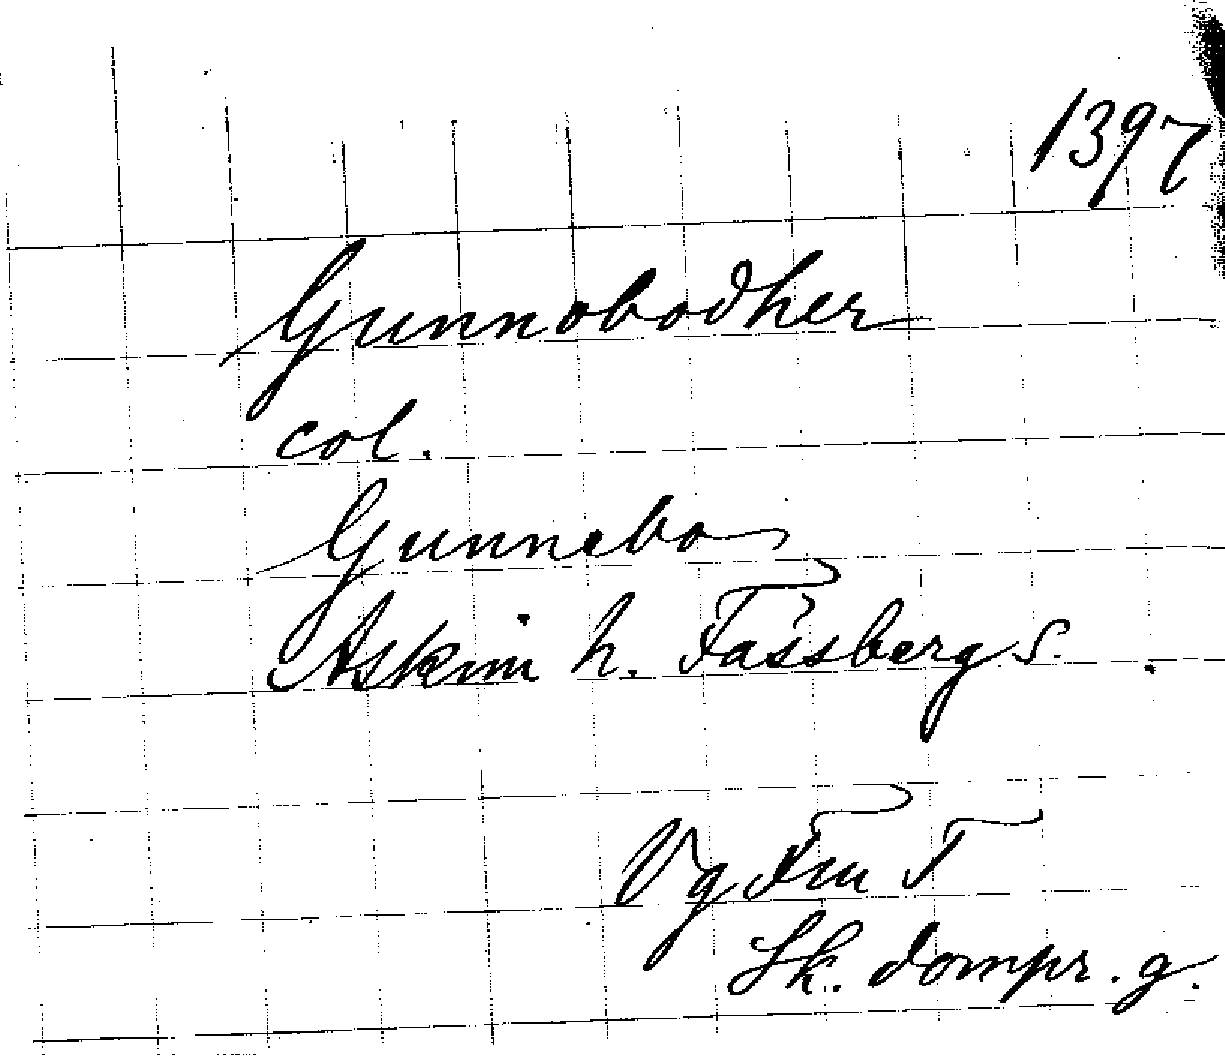 1397
Gunnobodher
col.
Gunnebo
Askim h. Fässbergs.
Vg Fm T
Sk. dompr. g.